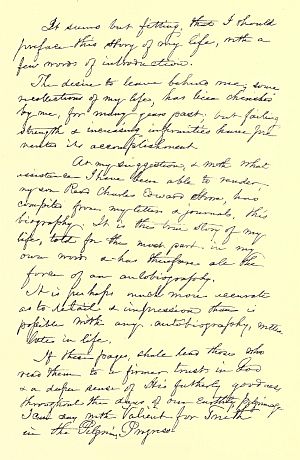 It seems but fitting, that I should
preface this story of my life, with a
few words of introduction.
The desire to leave behind me, some
recollections of my life, has been cherished
by me, for many years past, but failing
strength & increasing infirmities have pre
vented its accomplishment
At my suggestion, & with what
assistance I have been able to render,
my son Rev. Charles Edward Stowe, has
compiled from my letters & journals, this
biography. It is the true story of my
life, told for the most part, in my
own words & has therefore all the
force of an autobiography.
It is perhaps much more accurate
as to detail & impression than is
possible with any autobiography, written
late in life.
If these pages, shall lead those who
read them to a firmer trust in God
& a deeper sense of His fatherly goodness
throughout the days of our earthly pilgrimage
I can say with Valiant for Truth
in the Pilgrims Progress